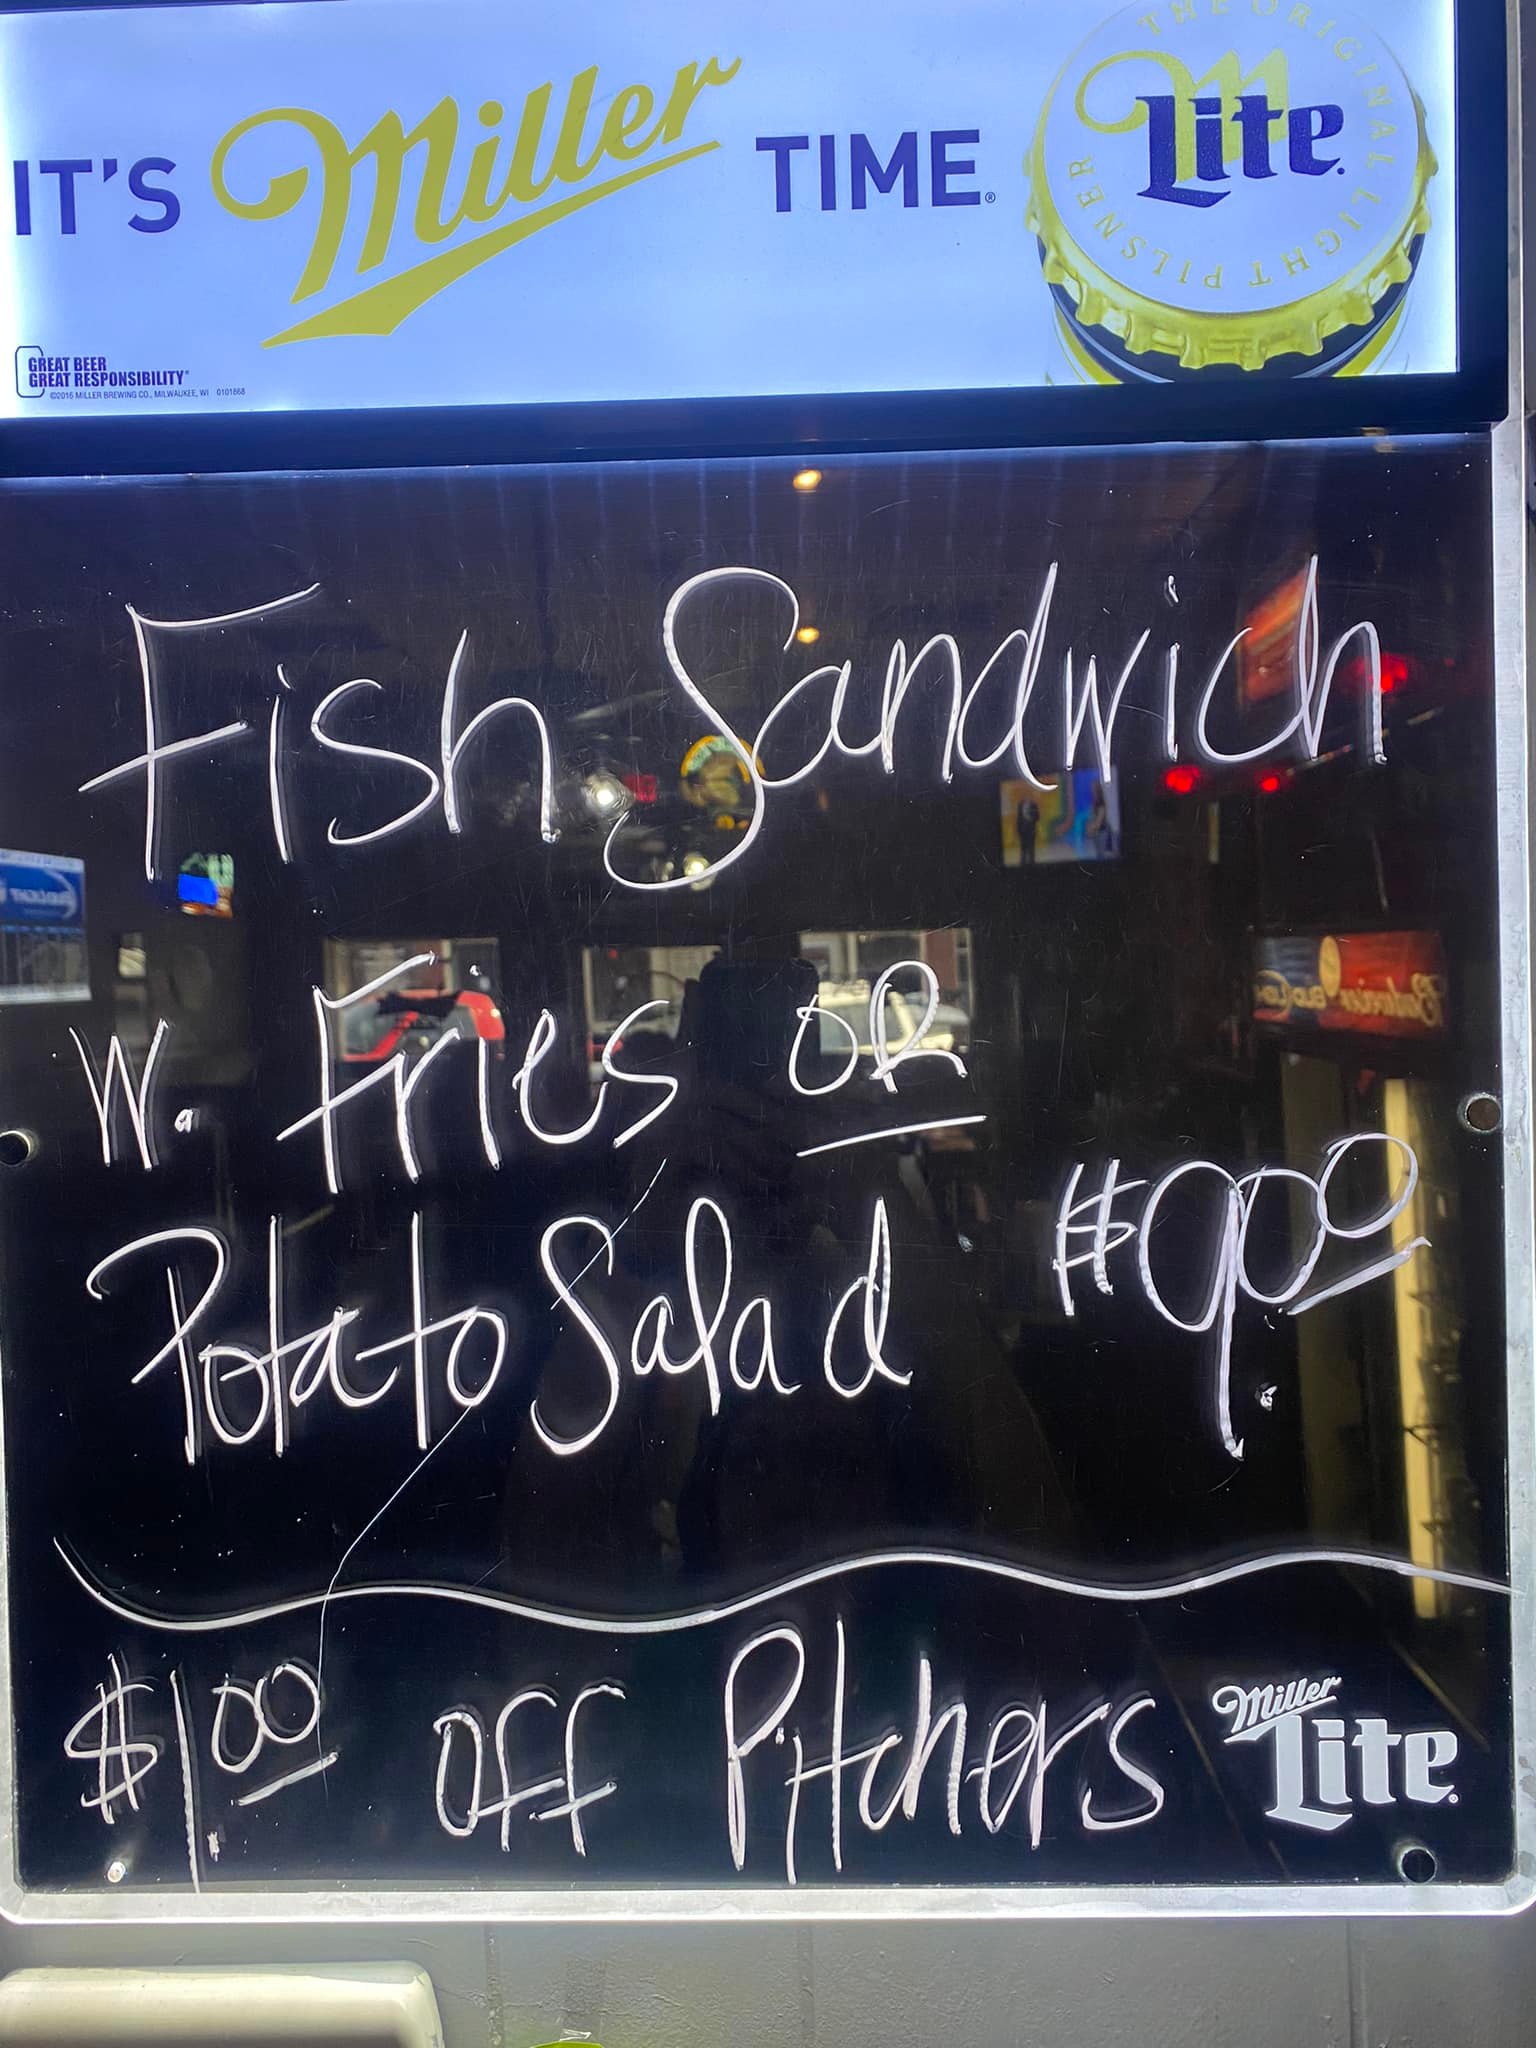 IT'S Miller TIME.®
THE ORIGINAL LIGHT PILSNER
Miller Lite.
GREAT BEER
GREAT RESPONSIBILITY®
©2016 MILLER BREWING CO., MILWAUKEE, WI 0101868
Fish Sandwich
W. Fries OR
Potato Salad $9.00
$1.00 OFF Pitchers
Miller Lite.